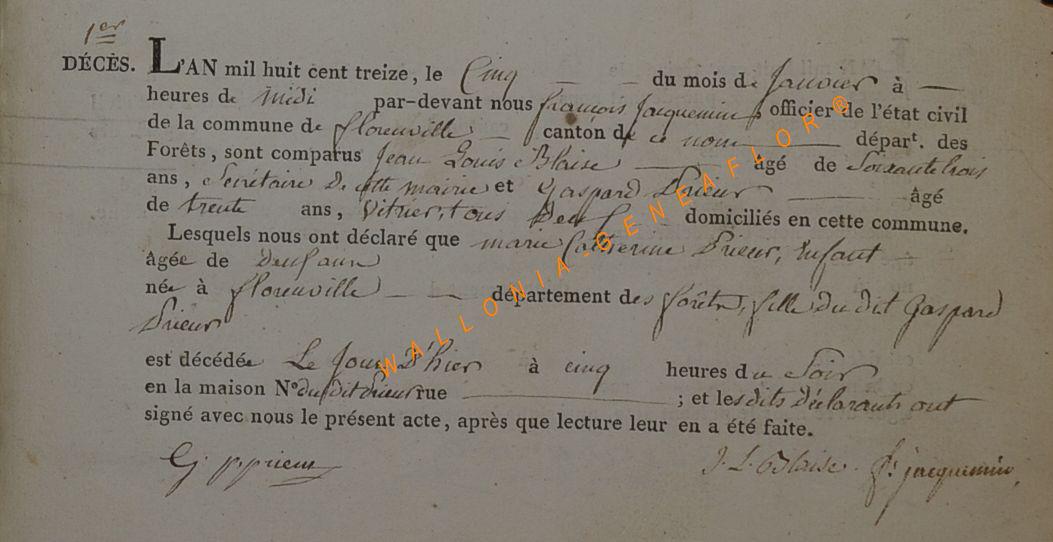 1er
DÉCÈS. L'AN mil huit cent treize, le Cinq — — du mois de Janvier à —
heures de midi par-devant nous françois Jacquemin, officier de l'état civil
de la commune de florenville — canton de ce nom — départ. des
Forêts, sont comparus Jean Louis Blaise — âgé de Soixante trois
ans, Secrétaire De cette mairie et Gaspard Prieur — âgé
de trente ans, Vitrier, tous Deux — domiciliés en cette commune.
Lesquels nous ont déclaré que marie Catherine Prieur, Enfant —
âgée de Deux ans
née à florenville — — département des forêts, fille Du dit Gaspard
Prieur
est décédée Le Jour D'hier à cinq heures du Soir
en la maison No du dit Prieur rue — ; et les dits Déclarants ont
signé avec nous le présent acte, après que lecture leur en a été faite.
G. prieur J. L. Blaise. fs jacquemin,
WALLONIA-GENEAFLOR®